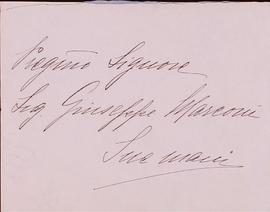 Pregmo Signore
Sig Giuseppe Marconi
Sue mani